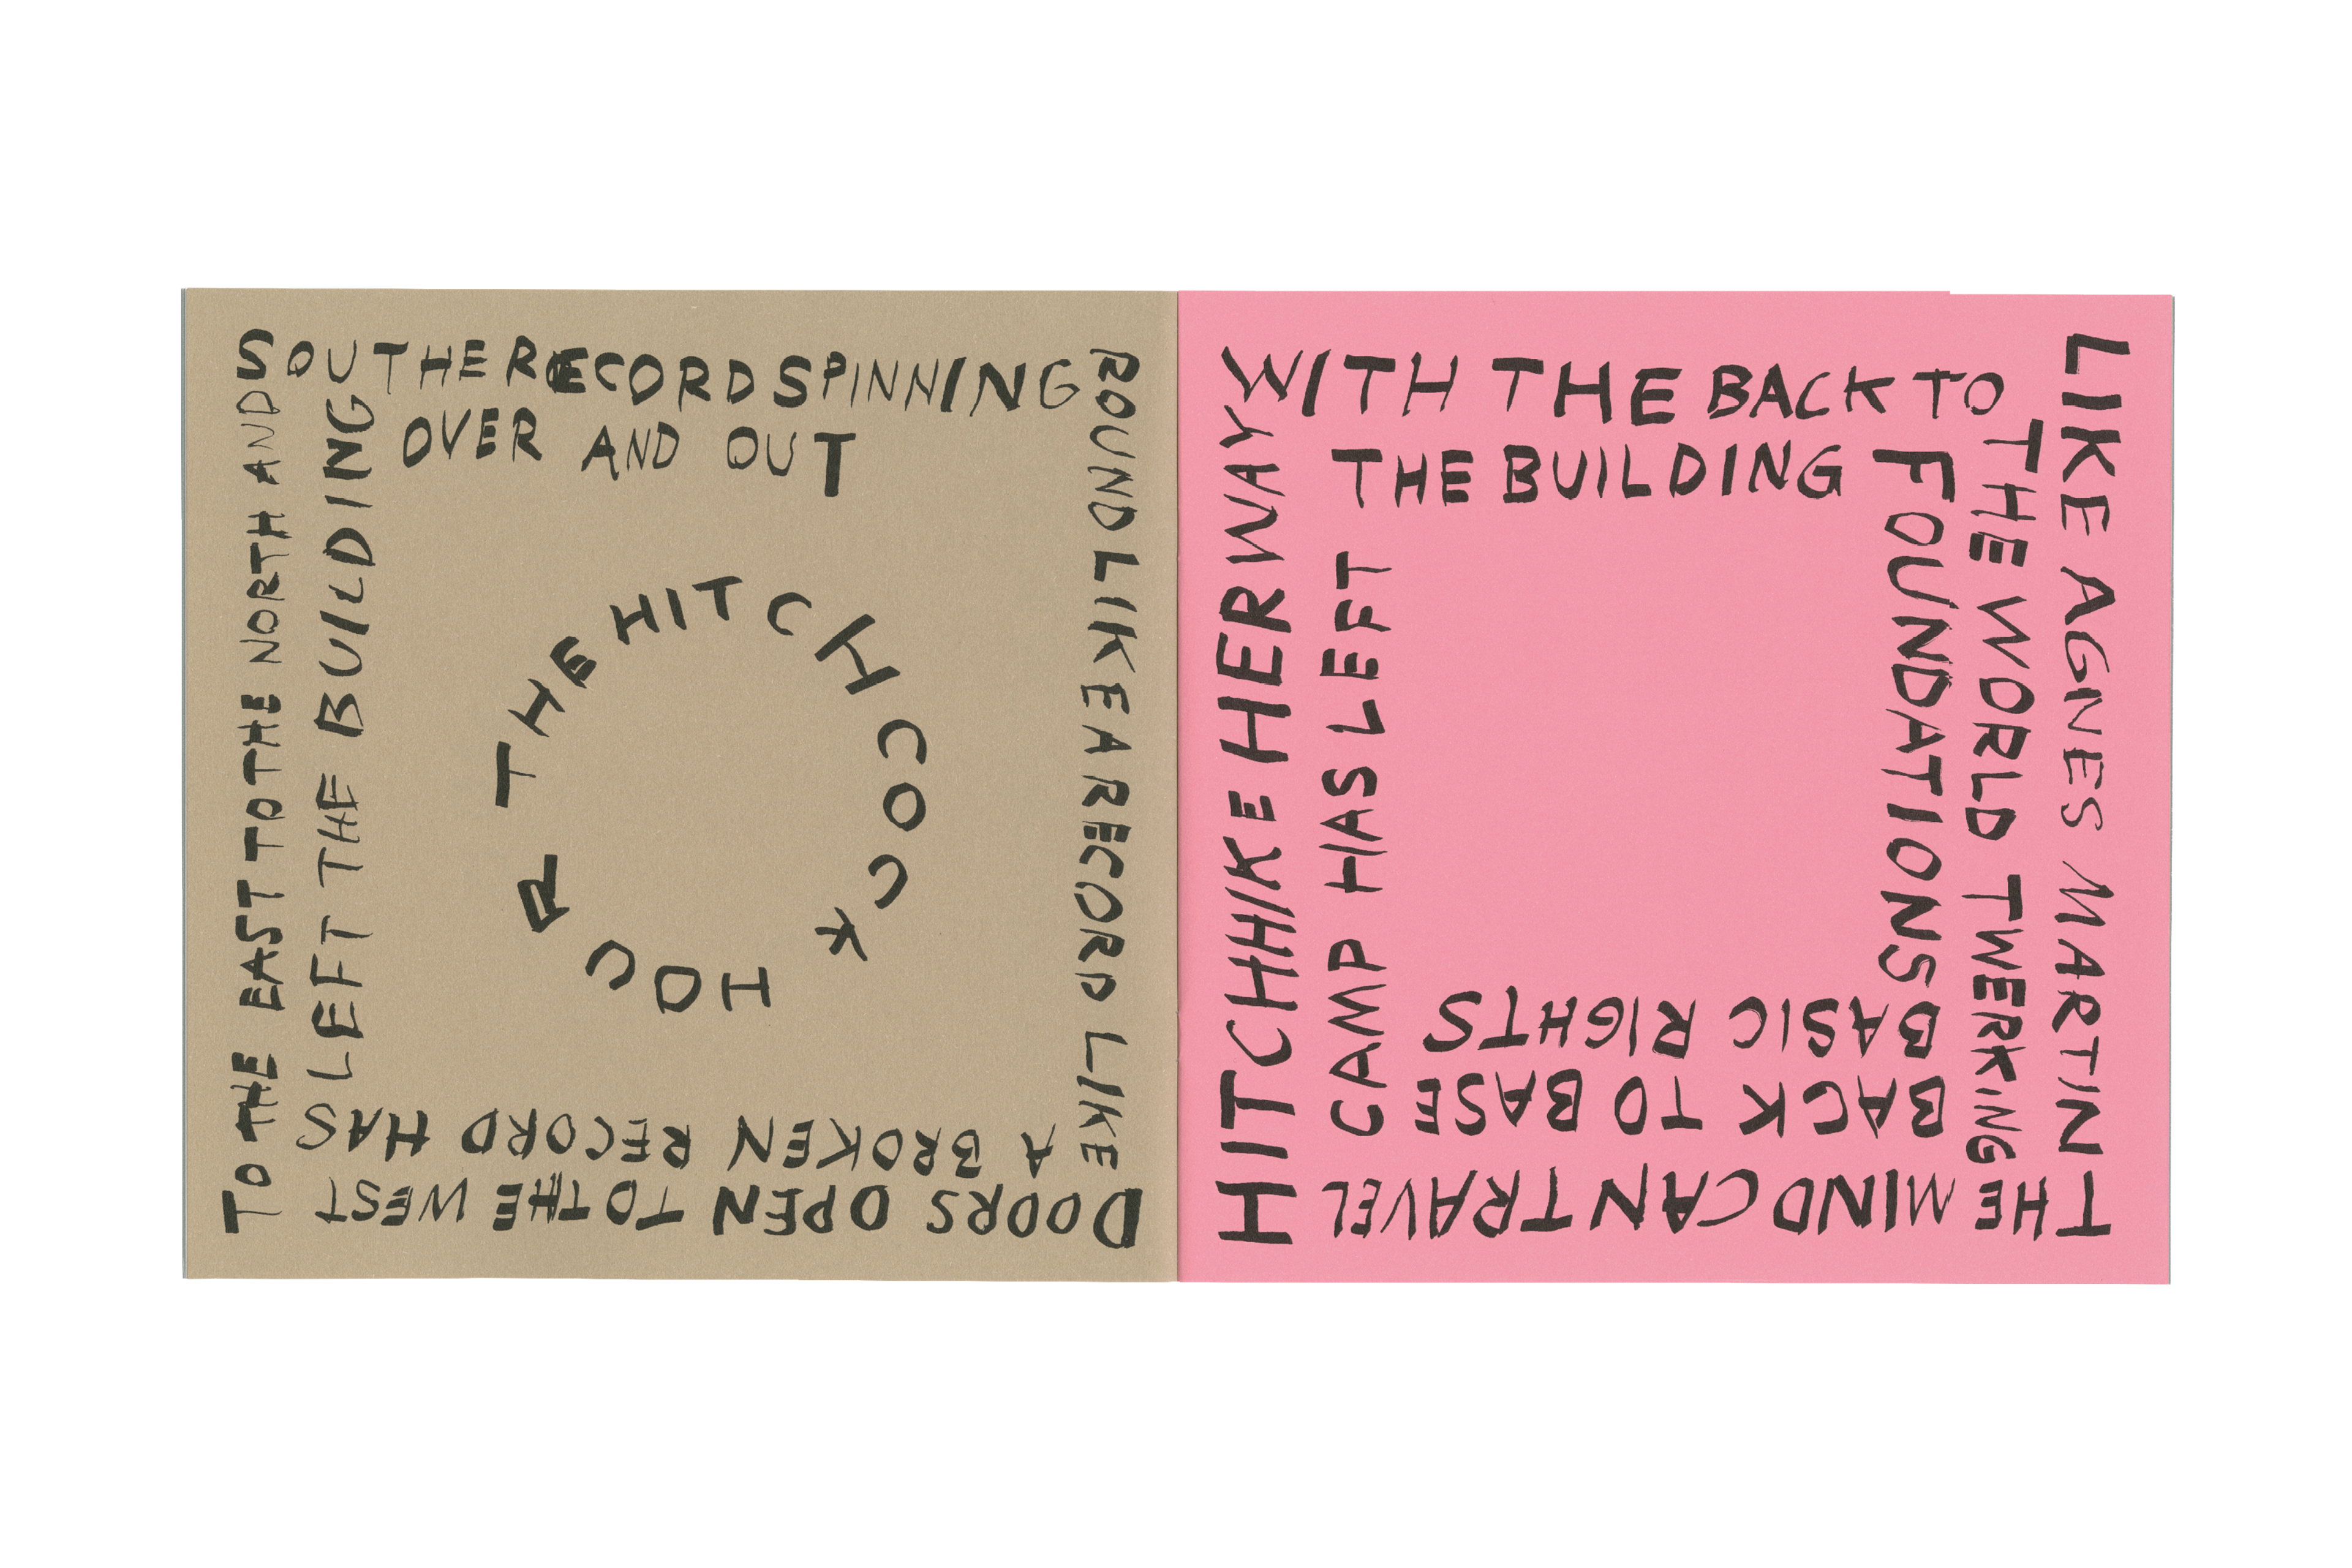 SOUTHERECORD SPINNING
ROUND LIKE A RECORD LIKE
DOORS OPEN TO THE WEST
TO THE EAST TO THE NORTH AND
A BROKEN RECORD HAS
LEFT THE BUILDING
OVER AND OUT
THE HITCHCOCK HOUR
LIKE AGNES MARTIN
THE MIND CAN TRAVEL
HITCHHIKE HER WAY
WITH THE BACK TO
THE WORLD TWERKING
BACK TO BASE
CAMP HAS LEFT
THE BUILDING
FOUNDATIONS
BASIC RIGHTS